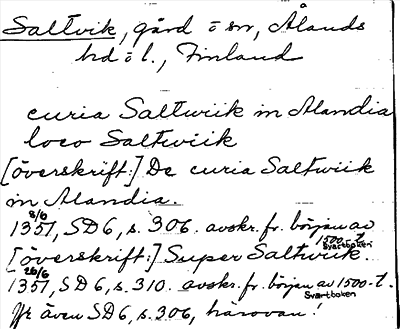 Saltvik, gård o sn, Ålands
hd o l., Finland
curia Saltwiik in Alandia
loco Saltwiik
[överskrift:] De curia Saltwiik
in Alandia.
8/6
1351, SD 6, s. 306. avskr. fr. början av
1500-t.
Svartboken
[överskrift:] Super Saltwiik.
26/6
1351, SD 6, s. 310. avskr. fr. början av 1500-t.
Svartboken
Jfr även SD 6, s. 306, härovan!